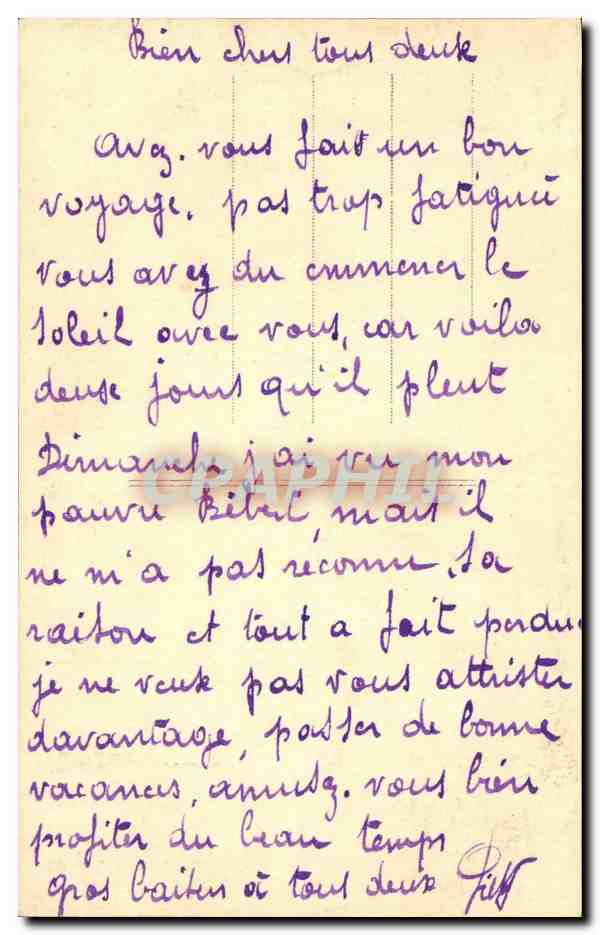 Bien chers tous deux
Avez-vous fait un bon
voyage, pas trop fatigué
vous avez du emmener le
soleil avec vous, car voila
deux jours qu'il pleut
Dimanche j'ai vu mon
CPAPHIL
pauvre Bébert, mais il
ne m'a pas réconnu, sa
raison et tout a fait perdu
je ne veux pas vous attrister
davantage, passer de bonne
vacances, amusez-vous bien
profiter du beau temps
gros baisers à tous deux